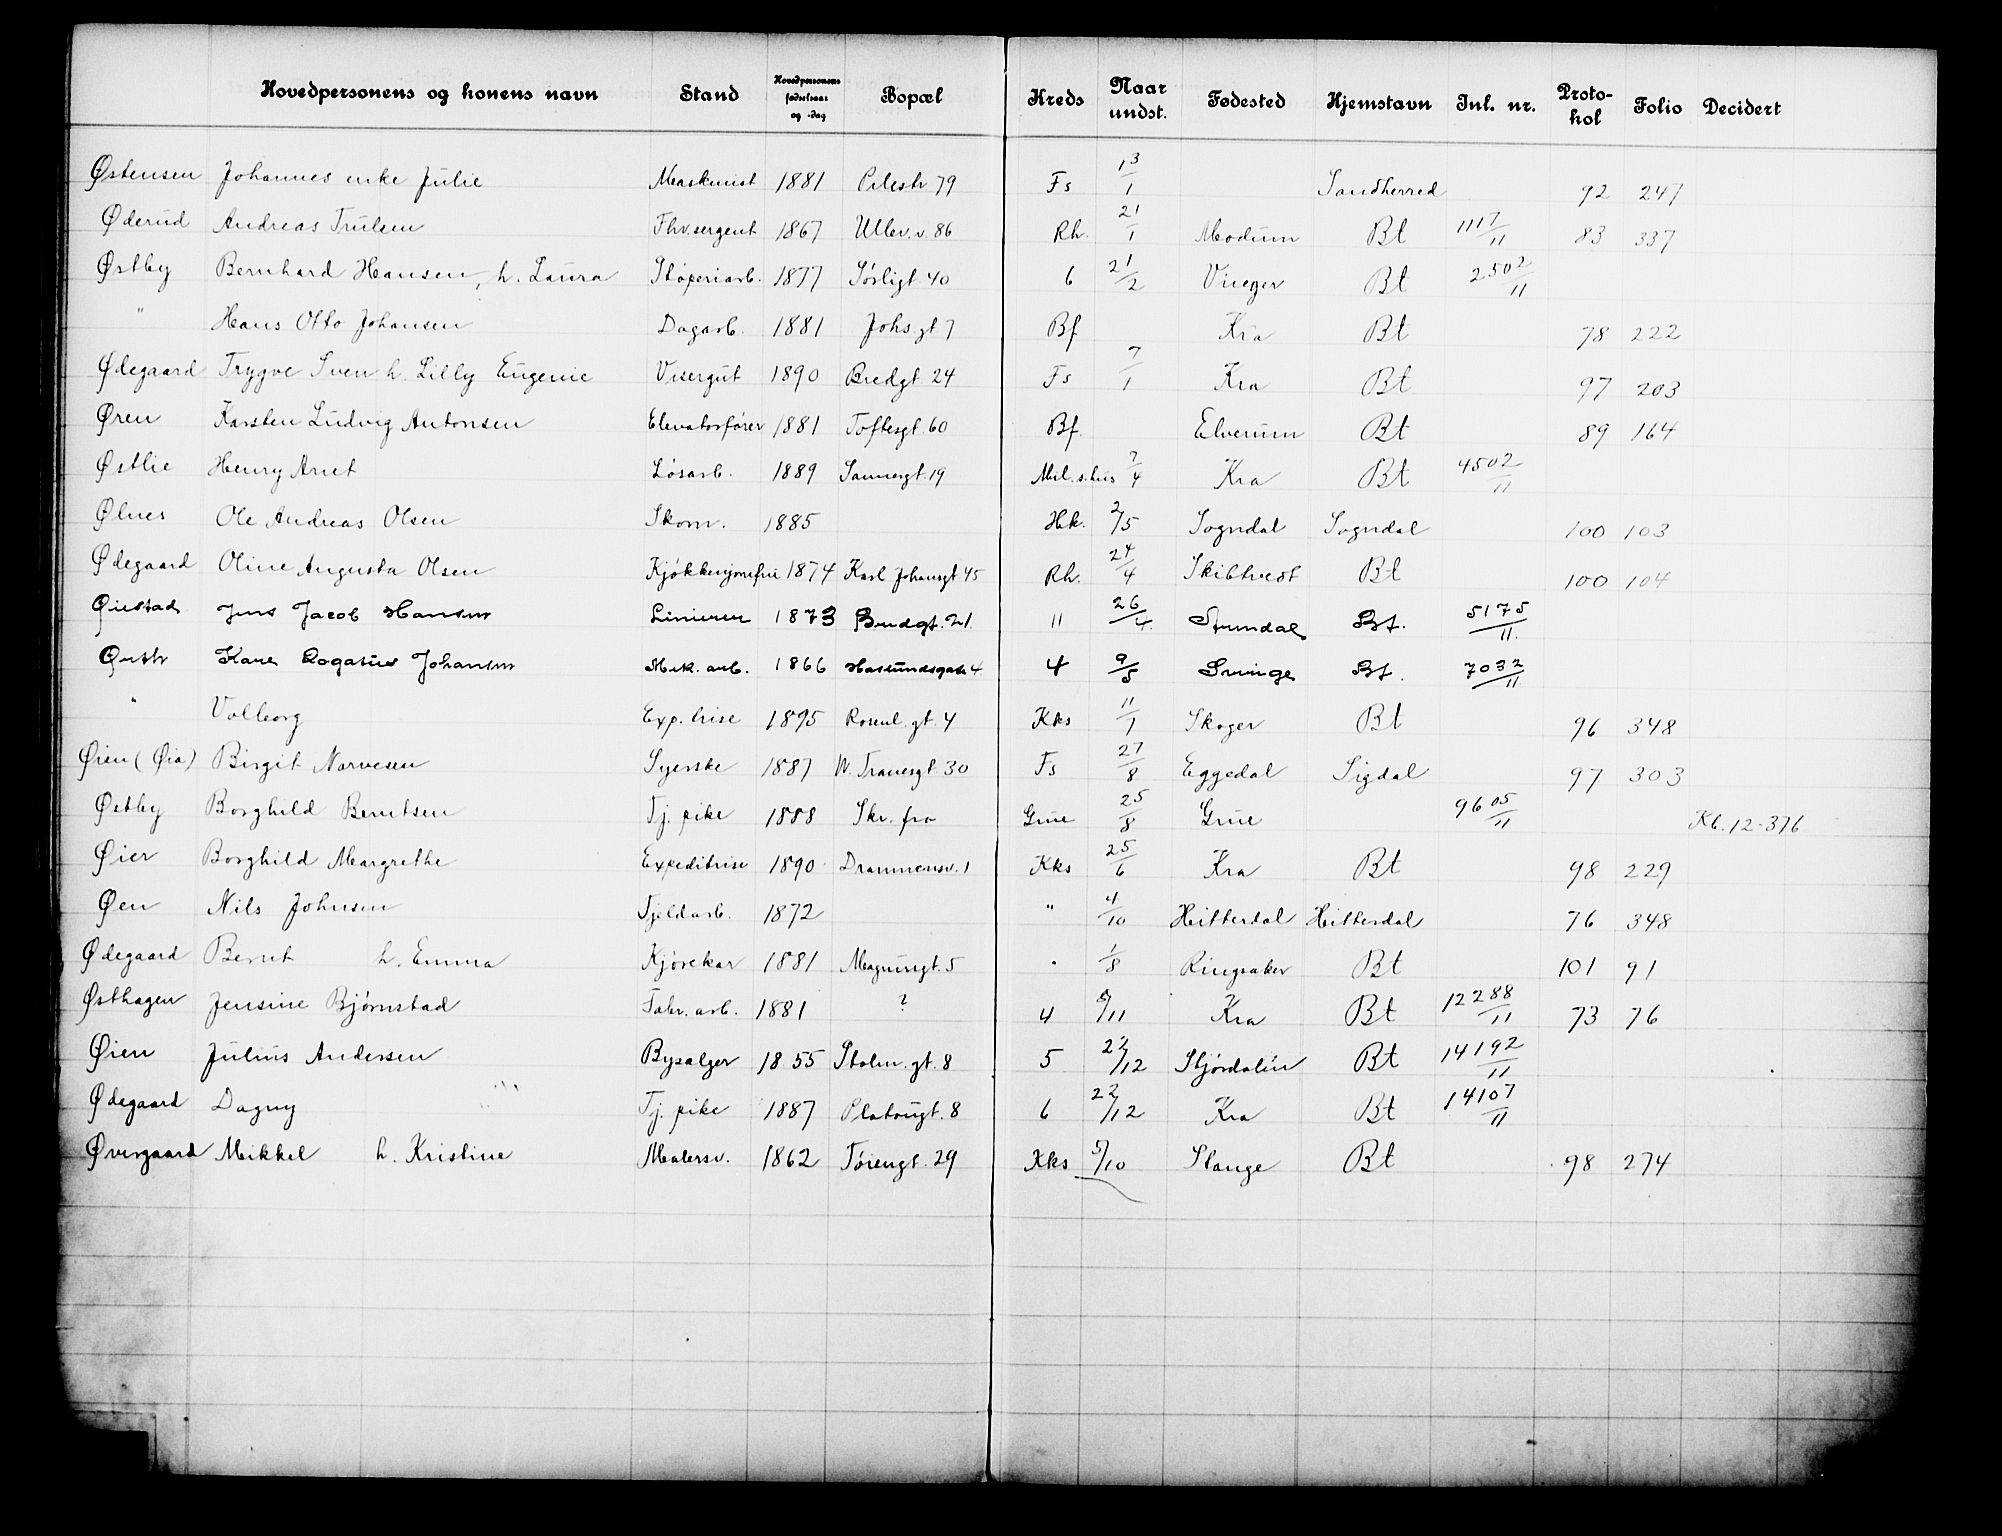 Hovedpersonens og konens navn Stand Hovedpersonens fødselsaar og -dag Bopæl Kreds Naar undst. Fødested Hjemstavn Inl. nr. Protokol Folio Decidert
Østensen Johannes enke Julie Maskinist 1881 Pilestr 79 Fs 13/1 Sandherred 92 247
Øderud Andreas Trulsen Fhv. sergent 1867 Ullev. v. 86 Rh. 21/1 Modum Bt 1117/11 83 337
Østby Bernhard Hansen, h. Laura Støperiarb. 1877 Sørligt 40 6 21/2 Vinger Bt 2502/11
" Hans Otto Johansen Dagarb. 1881 Johs. gt 7 Bf Kra Bt 78 222
Ødegaard Trygve Sven h. Lilly Eugenie Visergut 1890 Bredgt 24 Fs 7/1 Kra Bt 97 203
Øren Karsten Ludvig Antonsen Elevatorfører 1881 Toftesgt 60 Bf. Elverum Bt 89 164
Østlie Henry Arnt Løsarb. 1889 Sannergt. 19 Mil. s. hus 7/4 Kra Bt 4502/11
Ølnes Ole Andreas Olsen Skom. 1885 Hk. 2/5 Sogndal Sogndal 100 103
Ødegaard Oline Augusta Olsen Kjøkkenjomfru 1874 Karl Johansgt 45 Rh. 24/4 Skibtvedt Bt 100 104
Øiestad Jens Jacob Hansen Linierer 1873 Bredgt. 21 11 26/4. Bt. 5175/11.
Johansen Mek. arb. 1866 4 9/5 Bt. 7032/11
" Valborg Exp. trise 1895 Rosenl. gt. 4 Kks 11/1 Skoger Bt 96 348
Øien (Øia) Birgit Narvesen Syerske 1887 N. Tranesgt 30 Fs 27/8 Eggedal Sigdal 97 303
Østby Borghild Berntsen Tj. pike 1888 Skr. fra Grue 25/8 Grue 9605/11 Kb. 12-376
Øier Borghild Margrethe Expeditrise 1890 Drammensv. 1 Kks 25/6 Kra Bt 98 229
Øen Nils Johnsen Fjeldarb. 1872 " 4/10 Hitterdal Hitterdal 76 348
Ødegaard Bernt h. Emma Kjørekar 1881 Magnusgt. 5 " 1/8 Ringsaker Bt 101 91
Østhagen Jensine Bjørnstad Fabr. arb. 1881 ? 4 /11 Kra Bt 12288/11 73 76
Øien Julius Andersen Bysælger 1855 Stolm. gt. 8 5 22/12 Stjørdalen Bt 14192/11
Ødegaard Dagny Tj. pike 1887 Platougt. 8 6 22/12 Kra Bt 14107/11
Øvergaard Mikkel h. Kristine Malersv. 1862 Tøiengt. 29 Kks 5/10 Stange Bt 98 274